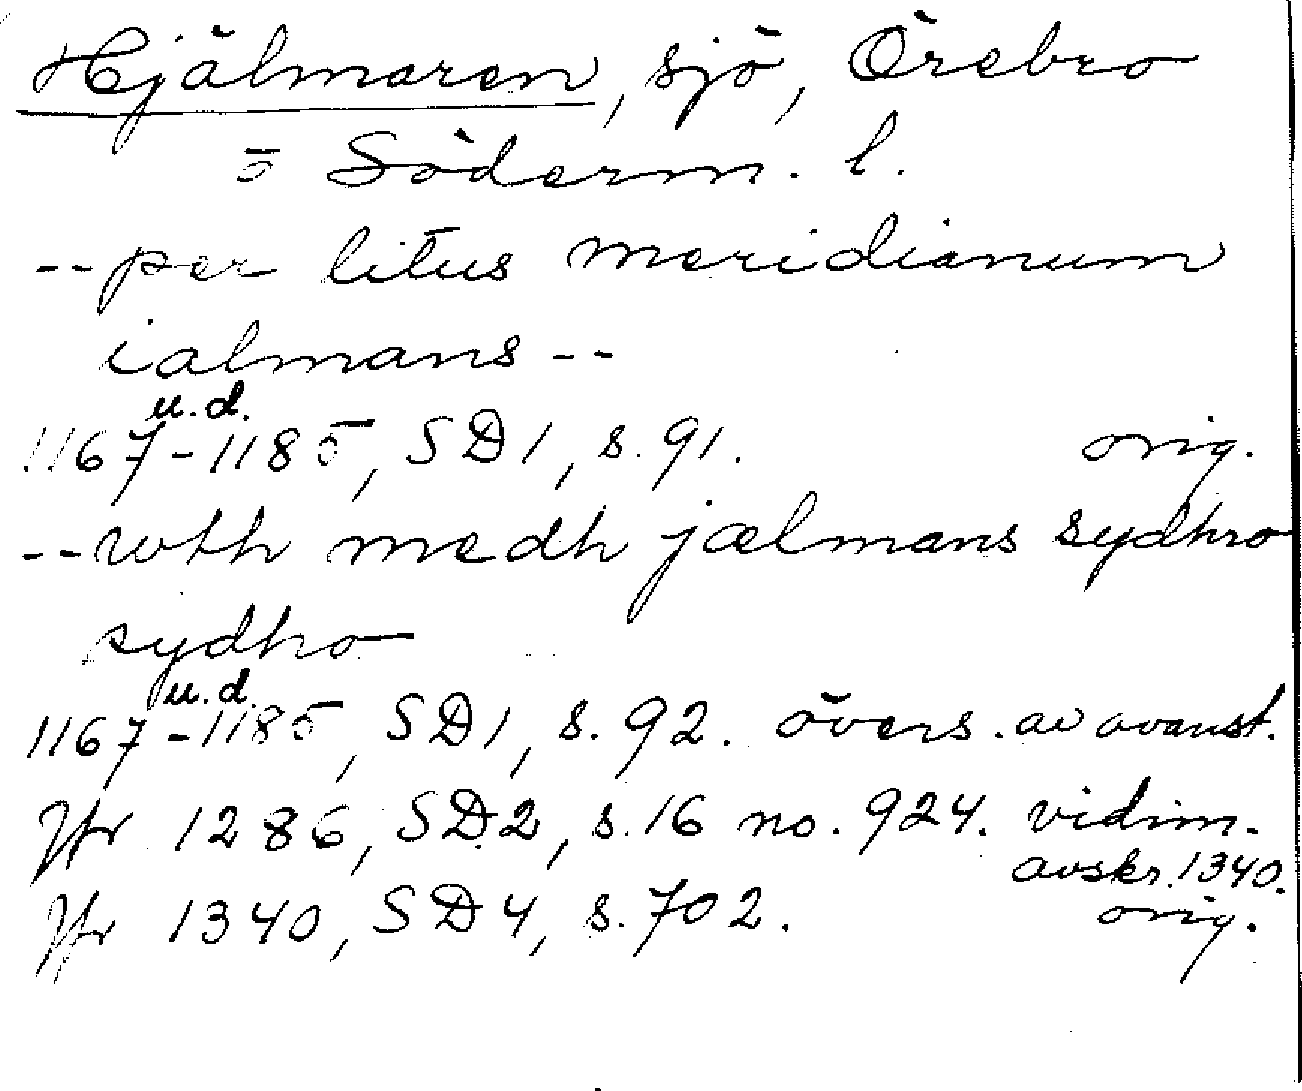 Hjälmaren, sjö, Örebro
o Söderm. l.
--per litus meridianum
ialmans--
u.d.
1167-1185, SD1, s.91. orig.
--wth medh jælmans sydhro
sydhro
u.d.
1167-1185, SD1, s.92. övers. av ovanst.
Jfr 1286, SD2, s.16 no.924. vidim.
avskr.1340.
Jfr 1340, SD4, s.702. orig.